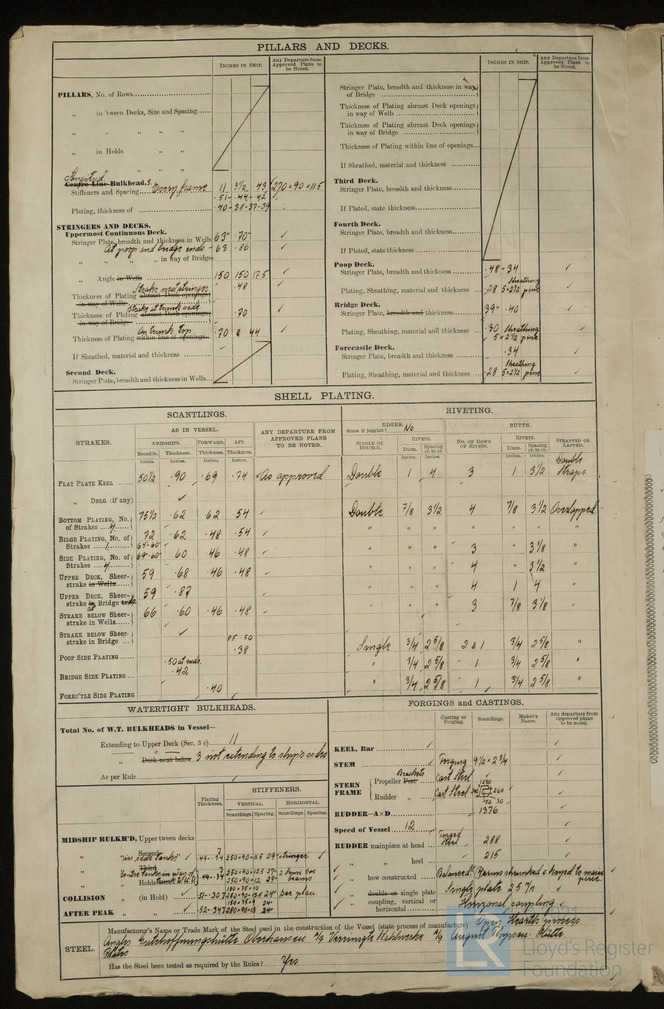 PILLARS AND DECKS.
INCHES IN SHIP.
Any Departure from Approved Plans to be Noted.
PILLARS, No. of Rows
„ in 'tween Decks, Size and Spacing
„ „ „ „
„ in Holds „ „
Centre Line Bulkhead.
Stiffeners and Spacing Every frame 11 3½ .43 270×90×11.5
.51- .44-.42
Plating, thickness of .40-.38-.37-.39
STRINGERS AND DECKS.
Uppermost Continuous Deck.
Stringer Plate, breadth and thickness in Wells 63" .70
At poop and bridge ends 63 .86
„ „ „ „ in way of Bridge
„ Angle in Wells 150 150 17.5
Strake next stringer
Thickness of Plating abreast Deck openings in way of Wells .48
Strake at trunk ends
Thickness of Plating abreast Deck openings in way of Bridge .70
On trunk top
Thickness of Plating within line of openings .70 & 44
If Sheathed, material and thickness
Second Deck.
Stringer Plate, breadth and thickness in Wells
INCHES IN SHIP.
Any Departure from Approved Plans to be Noted.
Stringer Plate, breadth and thickness in way of Bridge
Thickness of Plating abreast Deck openings in way of Wells
Thickness of Plating abreast Deck openings in way of Bridge
Thickness of Plating within line of openings
If Sheathed, material and thickness
Third Deck.
Stringer Plate, breadth and thickness
If Plated, state thickness
Fourth Deck.
Stringer Plate, breadth and thickness
If Plated, state thickness
Poop Deck.
Stringer Plate, breadth and thickness .48-34
Plating, Sheathing, material and thickness .28 Sheathing 5×2½ pine
Bridge Deck.
Stringer Plate, breadth and thickness 39" .40
Plating, Sheathing, material and thickness .30 Sheathing 5×2½ pine
Forecastle Deck.
Stringer Plate, breadth and thickness .34
Plating, Sheathing, material and thickness .28 Sheathing 5×2½ pine
SHELL PLATING.
SCANTLINGS.
RIVETING.
STRAKES.
AS IN VESSEL.
AMIDSHIPS. FORWARD. AFT.
Breadth. Thickness. Thickness. Thickness.
Inches Inches Inches. Inches.
ANY DEPARTURE FROM APPROVED PLANS TO BE NOTED.
EDGES.
State if joggled? No
SINGLE OR DOUBLE.
RIVETS.
Diam. Spacing cr. to cr.
Inches. Inches.
BUTTS.
NO. OF ROWS OF RIVETS.
RIVETS.
Diam. Spacing cr. to cr.
Inches. Inches.
STRAPPED OR LAPPED.
FLAT PLATE KEEL 50½ .90 .69 .74 As approved Double 1 4 3 1 3½ Double Straps
„ DBLG. (if any)
BOTTOM PLATING, No. of Strakes 4 75½ .62 62 .54 Double 7/8 3½ 4 7/8 3½ Overlapped
BILGE PLATING, No. of Strakes 1 72 .62 .48 .54 „ „ „ „ „ „ „
SIDE PLATING, No. of Strakes 4 64-60 60 46 .48 „ „ „ 3 „ 3⅛ „
UPPER DECK, Sheerstrake in Wells 59 .68 .46 .48 „ „ „ 4 „ 3½ „
UPPER DECK, Sheerstrake at Bridge ends 59 .87 „ „ „ 4 1 4 „
STRAKE BELOW Sheerstrake in Wells 66 .60 .46 .48 „ „ „ 3 7/8 3⅛ „
STRAKE BELOW Sheerstrake in Bridge
POOP SIDE PLATING .38 Single 3/4 2⅝ 2 & 1 3/4 2⅝ „
BRIDGE SIDE PLATING .50 at ends .42 „ 3/4 2⅝ 1 3/4 2⅝ „
FOREC'TLE SIDE PLATING .40 „ 3/4 2⅝ 1 3/4 2⅝ „
WATERTIGHT BULKHEADS.
Total No. of W.T. BULKHEADS in Vessel—
Extending to Upper Deck (Sec. 3 c) 11
„ Deck next below 3 not extending to ship's sides
As per Rule
Plating Thickness.
STIFFENERS.
VERTICAL HORIZONTAL
Scantlings. Spacing. Scantlings. Spacing.
MIDSHIP BULKH'D, Upper tween decks
„ „ Second „
„ „ Third „
„ „ Holds
COLLISION „ (in Hold) per plan
AFTER PEAK „
FORGINGS and CASTINGS.
Casting or Forging. Scantlings. Maker's Name. Any departure from approved plans to be noted.
KEEL, Bar
STEM Forging 9½×2¾
STERN FRAME
Propeller Post Brackets Cast Steel
Rudder „ Cast Steel
RUDDER—A×D 1376
Speed of Vessel 12
RUDDER mainpiece at head 288
„ „ heel 215
„ how constructed
„ double or single plate Single plate
„ coupling, vertical or horizontal Horizontal coupling
STEEL.
Manufacturer's Name or Trade Mark of the Steel used in the construction of the Vessel (state process of manufacture) Open Hearth process
Angles Gutehoffnungshütte Oberhausen A/G Vereinigte Stahlwerke A/G August Thyssen-Hütte
Plates
Has the Steel been tested as required by the Rules? Yes
Lloyd's Register
Foundation